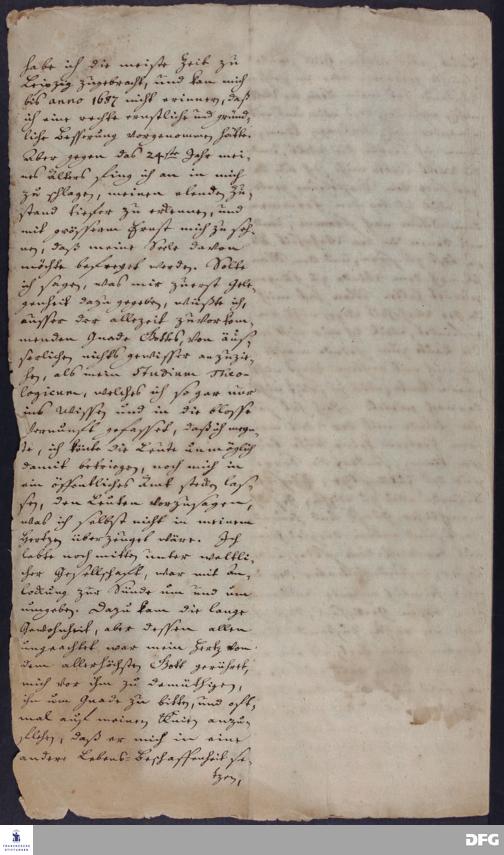 habe ich die meiste Zeit zu
Leipzig zugebracht, und kan mich
bis anno 1687 nicht erinnern, daß
ich eine rechte ernstliche und gründ-
liche Besserung vorgenommen hätte.
Aber gegen das 24ste Jahr mei-
nes Alters fing ich an in mich
zu schlagen, meinen elenden Zu-
stand tieffer zu erkennen, und
mit grösserm Ernst mich zu seh-
nen, daß meine Seele davon
möchte befreyet werden. Solte
ich sagen, was mir zuerst Gele-
genheit dazu gegeben, wüßte ich,
ausser der allezeit zuvorkom-
menden Gnade Gottes, von äus-
serlichen nichts gewisser anzuzie-
hen, als mein Studium Theo-
logicum, welches ich so gar nur
ins Wissen und in die blosse
Vernunft gefasset, daß ich meyn-
te, ich könte die Leute unmöglich
damit betriegen, noch mich in
ein öffentliches Amt stecken las-
sen, den Leuten vorzusagen,
was ich selbst nicht in meinem
Hertzen überzeuget wäre. Ich
lebte noch mitten unter weltli-
cher Gesellschaft, war mit An-
lockung zur Sünde um und um
umgeben. Dazu kam die lange
Gewohnheit, aber dessen allen
ungeachtet war mein Hertz von
dem allerhöchsten Gott gerühret,
mich vor ihm zu demüthigen,
ihn um Gnade zu bitten, und oft-
mal auf meinen Knien anzu-
flehen, daß er mich in eine
andere Lebens-Beschaffenheit se-
tzen,
FRANCKESCHE
STIFTUNGEN
DFG